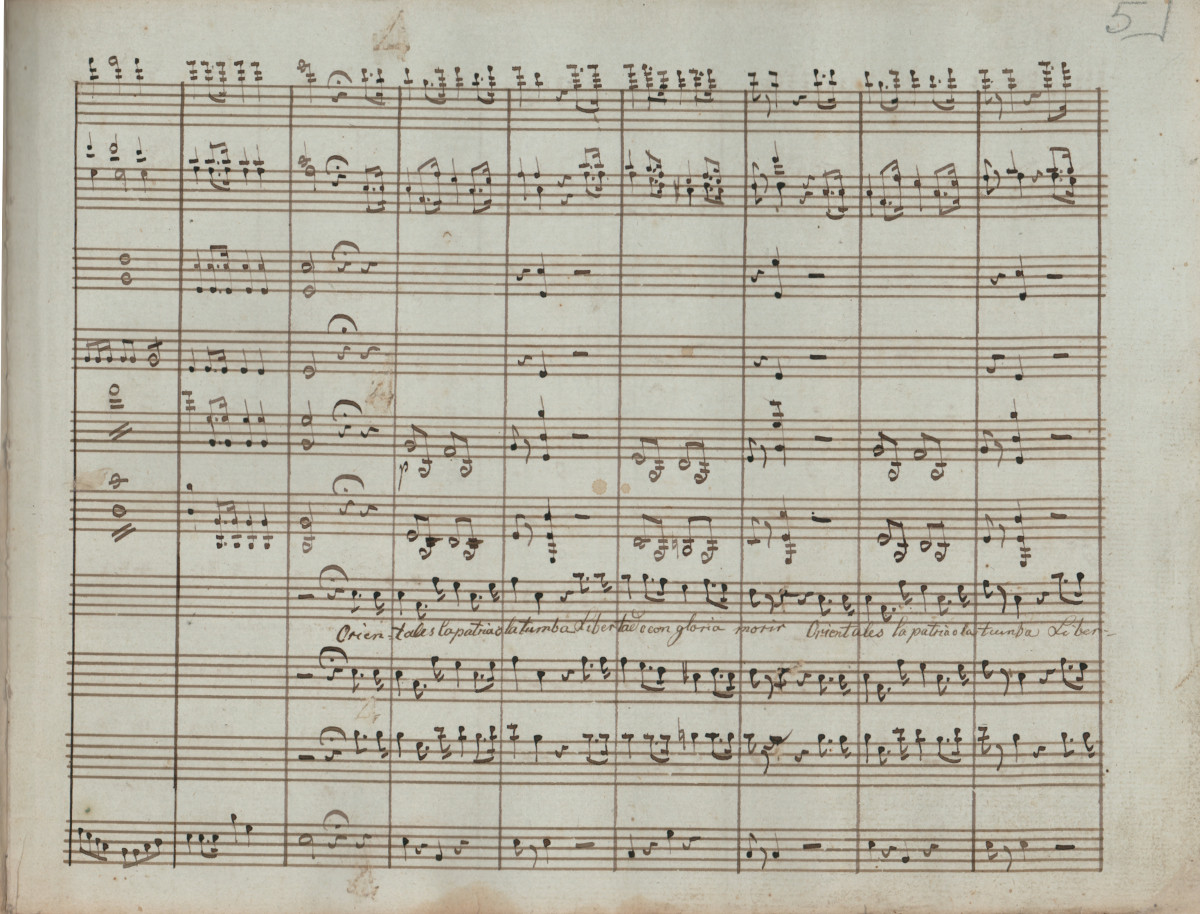 5
p
Orien-tales la patria o la tumba Libertad o con gloria morir Orientales la patria o la tumba Liber-